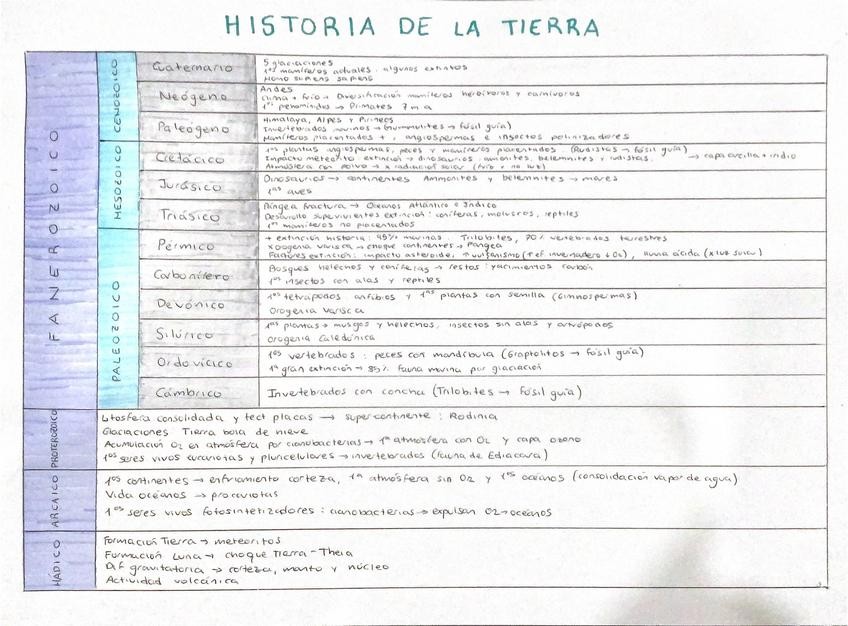 HISTORIA DE LA TIERRA
FANEROZOICO
CENOZOICO
Cuaternario
5 glaciaciones
1ºs mamíferos actuales. algunos extintos
Homo sapiens sapiens
Neógeno
Andes
Clima + frío → Diversificación mamíferos herbívoros y carnívoros
1ºs → Primates 7 m a
Paleógeno
Himalaya, Alpes y Pirineos
Invertebrados marinos → (Nummulites → fósil guía)
Mamíferos placentados + , angiospermas e insectos polinizadores
MESOZOICO
Cretácico
1ªs plantas angiospermas, peces y mamíferos placentados. (Rudistas → fósil guía)
Impacto meteorito extinción → dinosaurios, ammonites, belemnites y rudistas. → capa arcilla + iridio
Atmósfera con polvo → x radiación solar (frío + no luz)
Jurásico
Dinosaurios → continentes Ammonites y belemnites → mares
1ªs aves
Triásico
Pangea fractura → Océanos Atlántico e Índico
Desarrollo supervivientes extinción : coníferas, moluscos, reptiles
1ºs mamíferos no placentados
PALEOZOICO
Pérmico
+ extinción historia : 95% marinas. Trilobites, 70% vertebrados terrestres
Xogenia varisca → choque continentes → Pangea
Factores extinción : impacto asteroide, ↑ vulcanismo (↑ ef invernadero ↓ O2), lluvia ácida (x luz solar)
Carbonífero
Bosques helechos y coníferas → restos : yacimientos carbón
1ºs insectos con alas y reptiles
Devónico
1ºs tetrápodos anfibios y 1ªs plantas con semilla (Gimnospermas)
Orogenia Varisca
Silúrico
1ªs plantas → musgos y helechos, insectos sin alas y artrópodos
Orogenia Caledónica
Ordovícico
1ºs vertebrados : peces con mandíbula (Graptolitos → fósil guía)
1ª gran extinción → 85% fauna marina por glaciación
Cámbrico
Invertebrados con concha (Trilobites → fósil guía)
PROTEROZOICO
Litosfera consolidada y tect placas → supercontinente : Rodinia
Glaciaciones Tierra bola de nieve
Acumulación O2 en atmósfera por cianobacterias → 1ª atmósfera con O2 y capa ozono
1ºs seres vivos eucariotas y pluricelulares → invertebrados (Fauna de Ediacara)
ARCAICO
1ºs continentes → enfriamiento corteza, 1ª atmósfera sin O2 y 1ºs océanos (consolidación vapor de agua)
Vida océanos → procariotas
1ºs seres vivos fotosintetizadores : cianobacterias → expulsan O2 → océanos
HÁDICO
Formación Tierra → meteoritos
Formación Luna → choque Tierra - Theia
Dif gravitatoria → corteza, manto y núcleo
Actividad volcánica